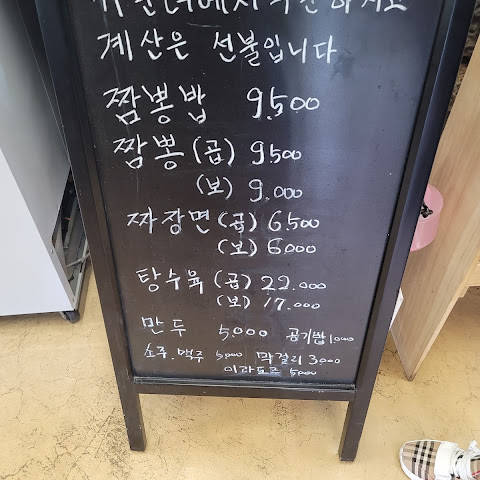 에서 주문하시고
계산은 선불입니다
짬뽕밥 9.500
짬뽕 (곱) 9500
(보) 9.000
짜장면 (곱) 6.500
(보) 6000
탕수육 (곱) 22.000
(보) 17.000
만두 5.000 공기밥 1000
소주.맥주 5000 막걸리 3000
이과두주 5000